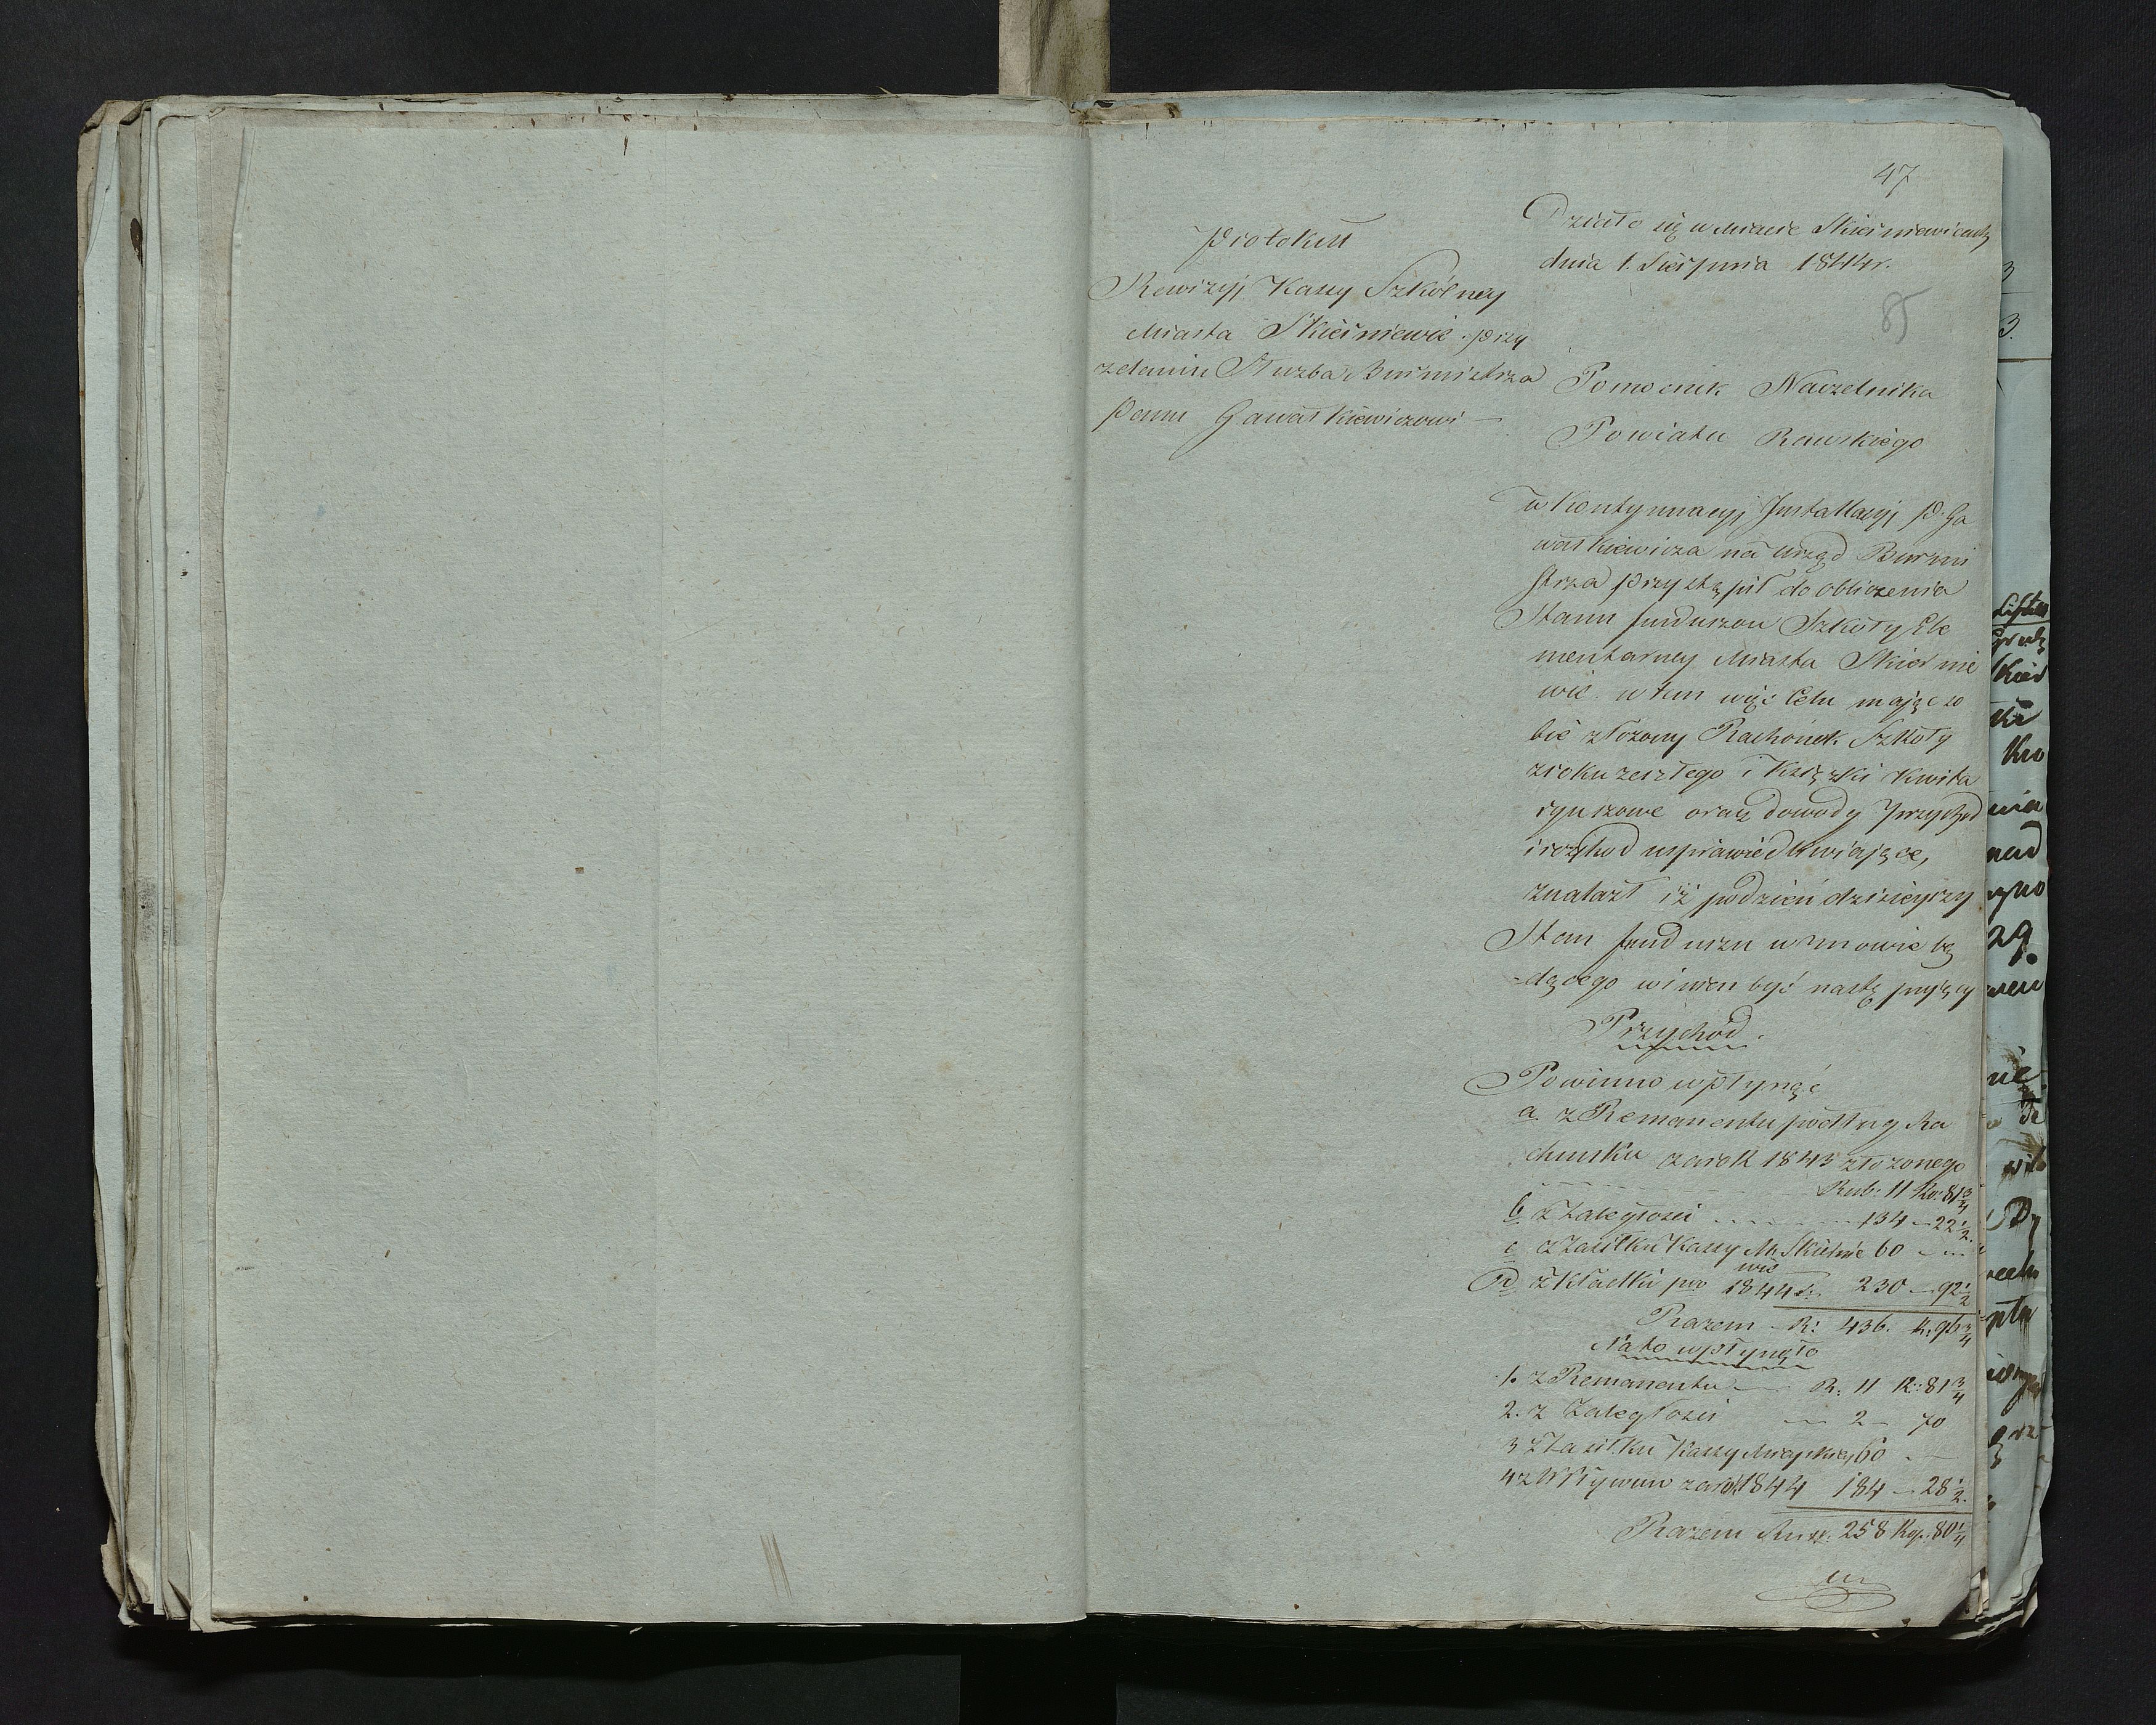 47
Protokuł
Rewizyj Kassy Szkólney
Miasta Skierniewic przy
zdaniu Służba Burmistrza
Panu Gawałkiewiczowi —
Działo się w Mieście Skierniewicach
dnia 1. Sierpnia 1844 r.
85
Pomocnik Naczelnika
Powiatu Rawskiego
w Kontynuacyj Installacyj P. Ga
wałkiewicza na urząd Burmi
strza przystąpił do obliczenia
Stanu funduszou Szkoły Ele
mentarney Miasta Skiernie
wic. w tem więc Celu mając so
bie złożony Rachónek Szkoły
z roku zeszłego i Książki Kwita
ryuszowe oraz dowody przychod
i rozchod usprawiedliwiające,
znalazł iż podzień dzisieyszy
Stan funduszu w mowie bę
-dącego winien być następuiący
Przychód.
Powinno wpłynąć
a. z Remanentu podług Ra
chunku za rok 1843 złożonego
Rub: 11 Ko: 81 3/4
b z Zaległości ... 134 — 22 1/2.
c z Zasiłku Kassy M. Skiernie 60 — —
wic
d z Składki pro 1844 r. 230 — 92 1/2
Razem R: 436. K: 96 3/4
Na to wpłynęło
1. z Remanentu — R: 11 K: 81 3/4
2. z Zaległości — 2 — 70
3 z Zasiłku Kassy Mieyskiey 60 . —
4 z Wpływuw za rok 1844 184 — 28 1/2.
Razem Rusr: 258 Kop: 80 1/4